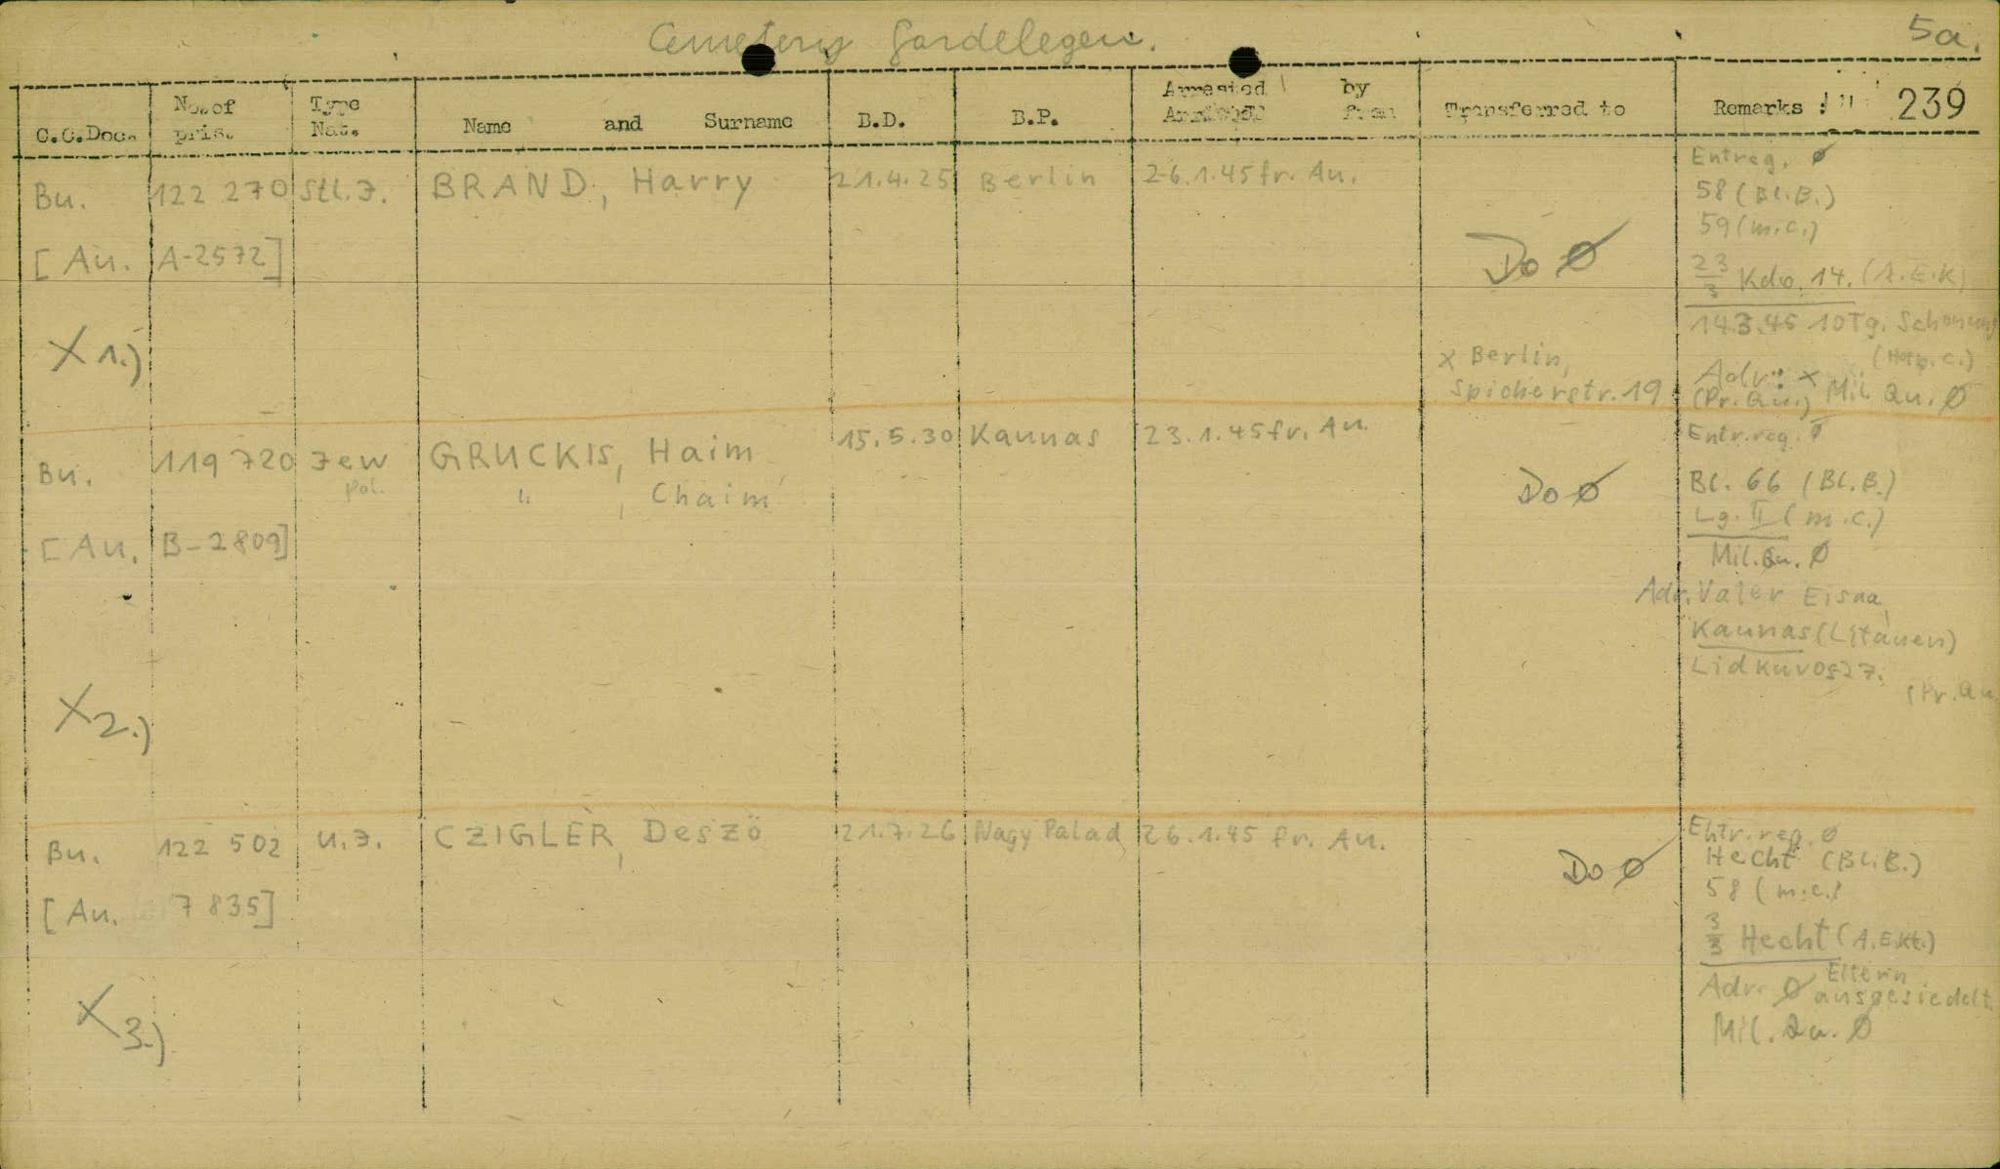 Cemetery Gardelegen.
5a.
C.C.Doc. No. of pris. Type Nat. Name and Surname B.D. B.P. Arrested by from Transferred to Remarks : 239
Bu. 122 270 Stl. J. BRAND, Harry 21.4.25 Berlin 26.1.45 fr. Au.
Entreg. Ø
58 (Bl.B.)
59 (m.c.)
[Au. A-2572]
Do Ø
23/3 Kdo. 14. (A.E.K)
14.3.45 10 Tg. Schonung
X 1.)
x Berlin,
Spicherstr. 19
Adr.: x
(Pr. Qu.) Mil Qu. Ø
Bu. 119 720 Jew GRUCKIS, Haim 15.5.30 Kaunas 23.1.45 fr. Au.
Pol. " , Chaim
Do Ø
Entr.reg.
Bl. 66 (Bl.B.)
Lg. II (m.c.)
[Au. B-2809]
Mil.Qu. Ø
Adr. Vater Eisna,
Kaunas (Litauen)
(Pr. Qu.
X 2.)
Bu. 122 502 U.J. CZIGLER, Deszö 21.7.26 Nagy Palad 26.1.45 fr. Au.
Do Ø
Entr.reg. Ø
Hecht (Bl.B.)
58 (m.c.)
[Au. 7835]
3/3 Hecht (A.E.Kt.)
Adr. Ø Eltern
ausgesiedelt
Mil. Qu. Ø
X 3.)